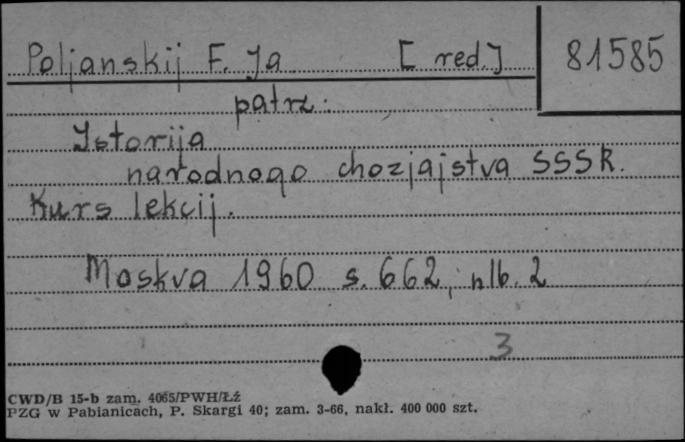 Poljanskij F. Ja [red.] 81585
patrz:
Istorija
narodnogo chozjajstva SSSR.
Kurs lekcij.
Moskva 1960 s. 662, nlb. 2
3
CWD/B 15-b zam. 4065/PWH/Łź
PZG w Pabianicach, P. Skargi 40; zam. 3-66, nakł. 400 000 szt.